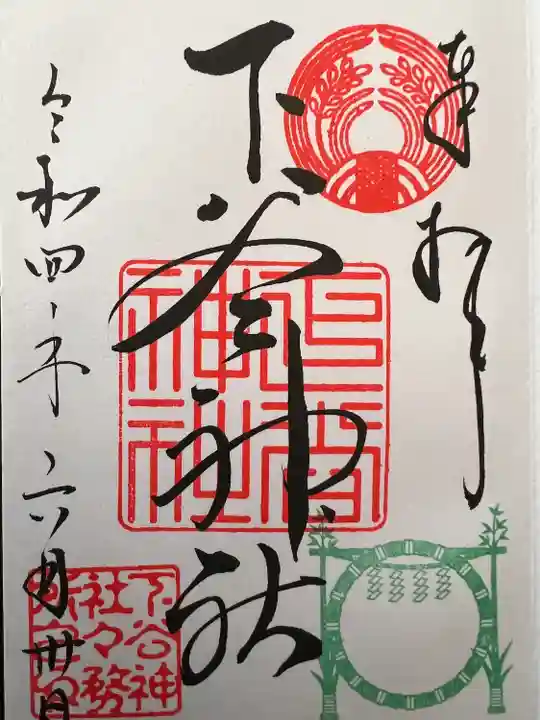 奉拝
下谷神社
下谷神社
令和四年六月卅日
下谷神
社々務
所之印